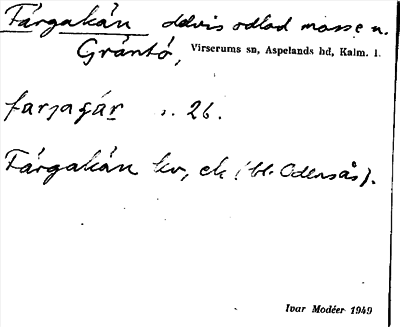 Färgakän delvis odlad mosse n.
Gräntö, Virserums sn, Aspelands hd, Kalm. l.
farjagár .. 26.
Färgakän kv, ek (bl. Odensås).
Ivar Modéer 1949